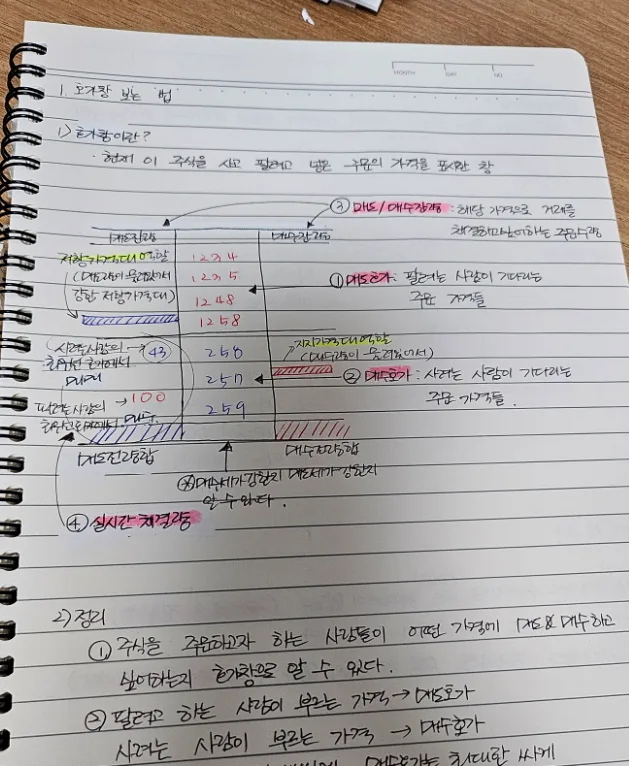 MONTH DAY NO.
1. 호가창 보는 법
1) 호가창이란?
· 현재 이 주식을 사고 팔려고 넣은 주문의 가격을 표시한 창
③ 매도/매수잔량 : 해당 가격으로 거래를
체결하고싶어하는 주문수량
매도잔량
매수잔량
저항가격대 역할
(매도량이 몰려있어서
강한 저항가격대)
1234
1235
1248
1258
① 매도호가 : 팔려는 사람이 기다리는
주문 가격들
사려는사람의 → 43
최우선 호가에서
매매
258
257
259
지지가격대역할
(매수량이 몰려있어서)
② 매수호가 : 사려는 사람이 기다리는
주문 가격들.
팔려는사람의 → 100
매도잔량합
매수잔량합
매수세가 강한지 매도세가 강한지
알 수 있다.
④ 실시간 체결량
2) 정리
① 주식을 주문하고자 하는 사람들이 어떤 가격에 매도&매수하고
싶어하는지 호가창으로 알 수 있다.
② 팔려고 하는 사람이 부르는 가격 → 매도호가
사려는 사람이 부르는 가격 → 매수호가
매수호가는 최대한 싸게